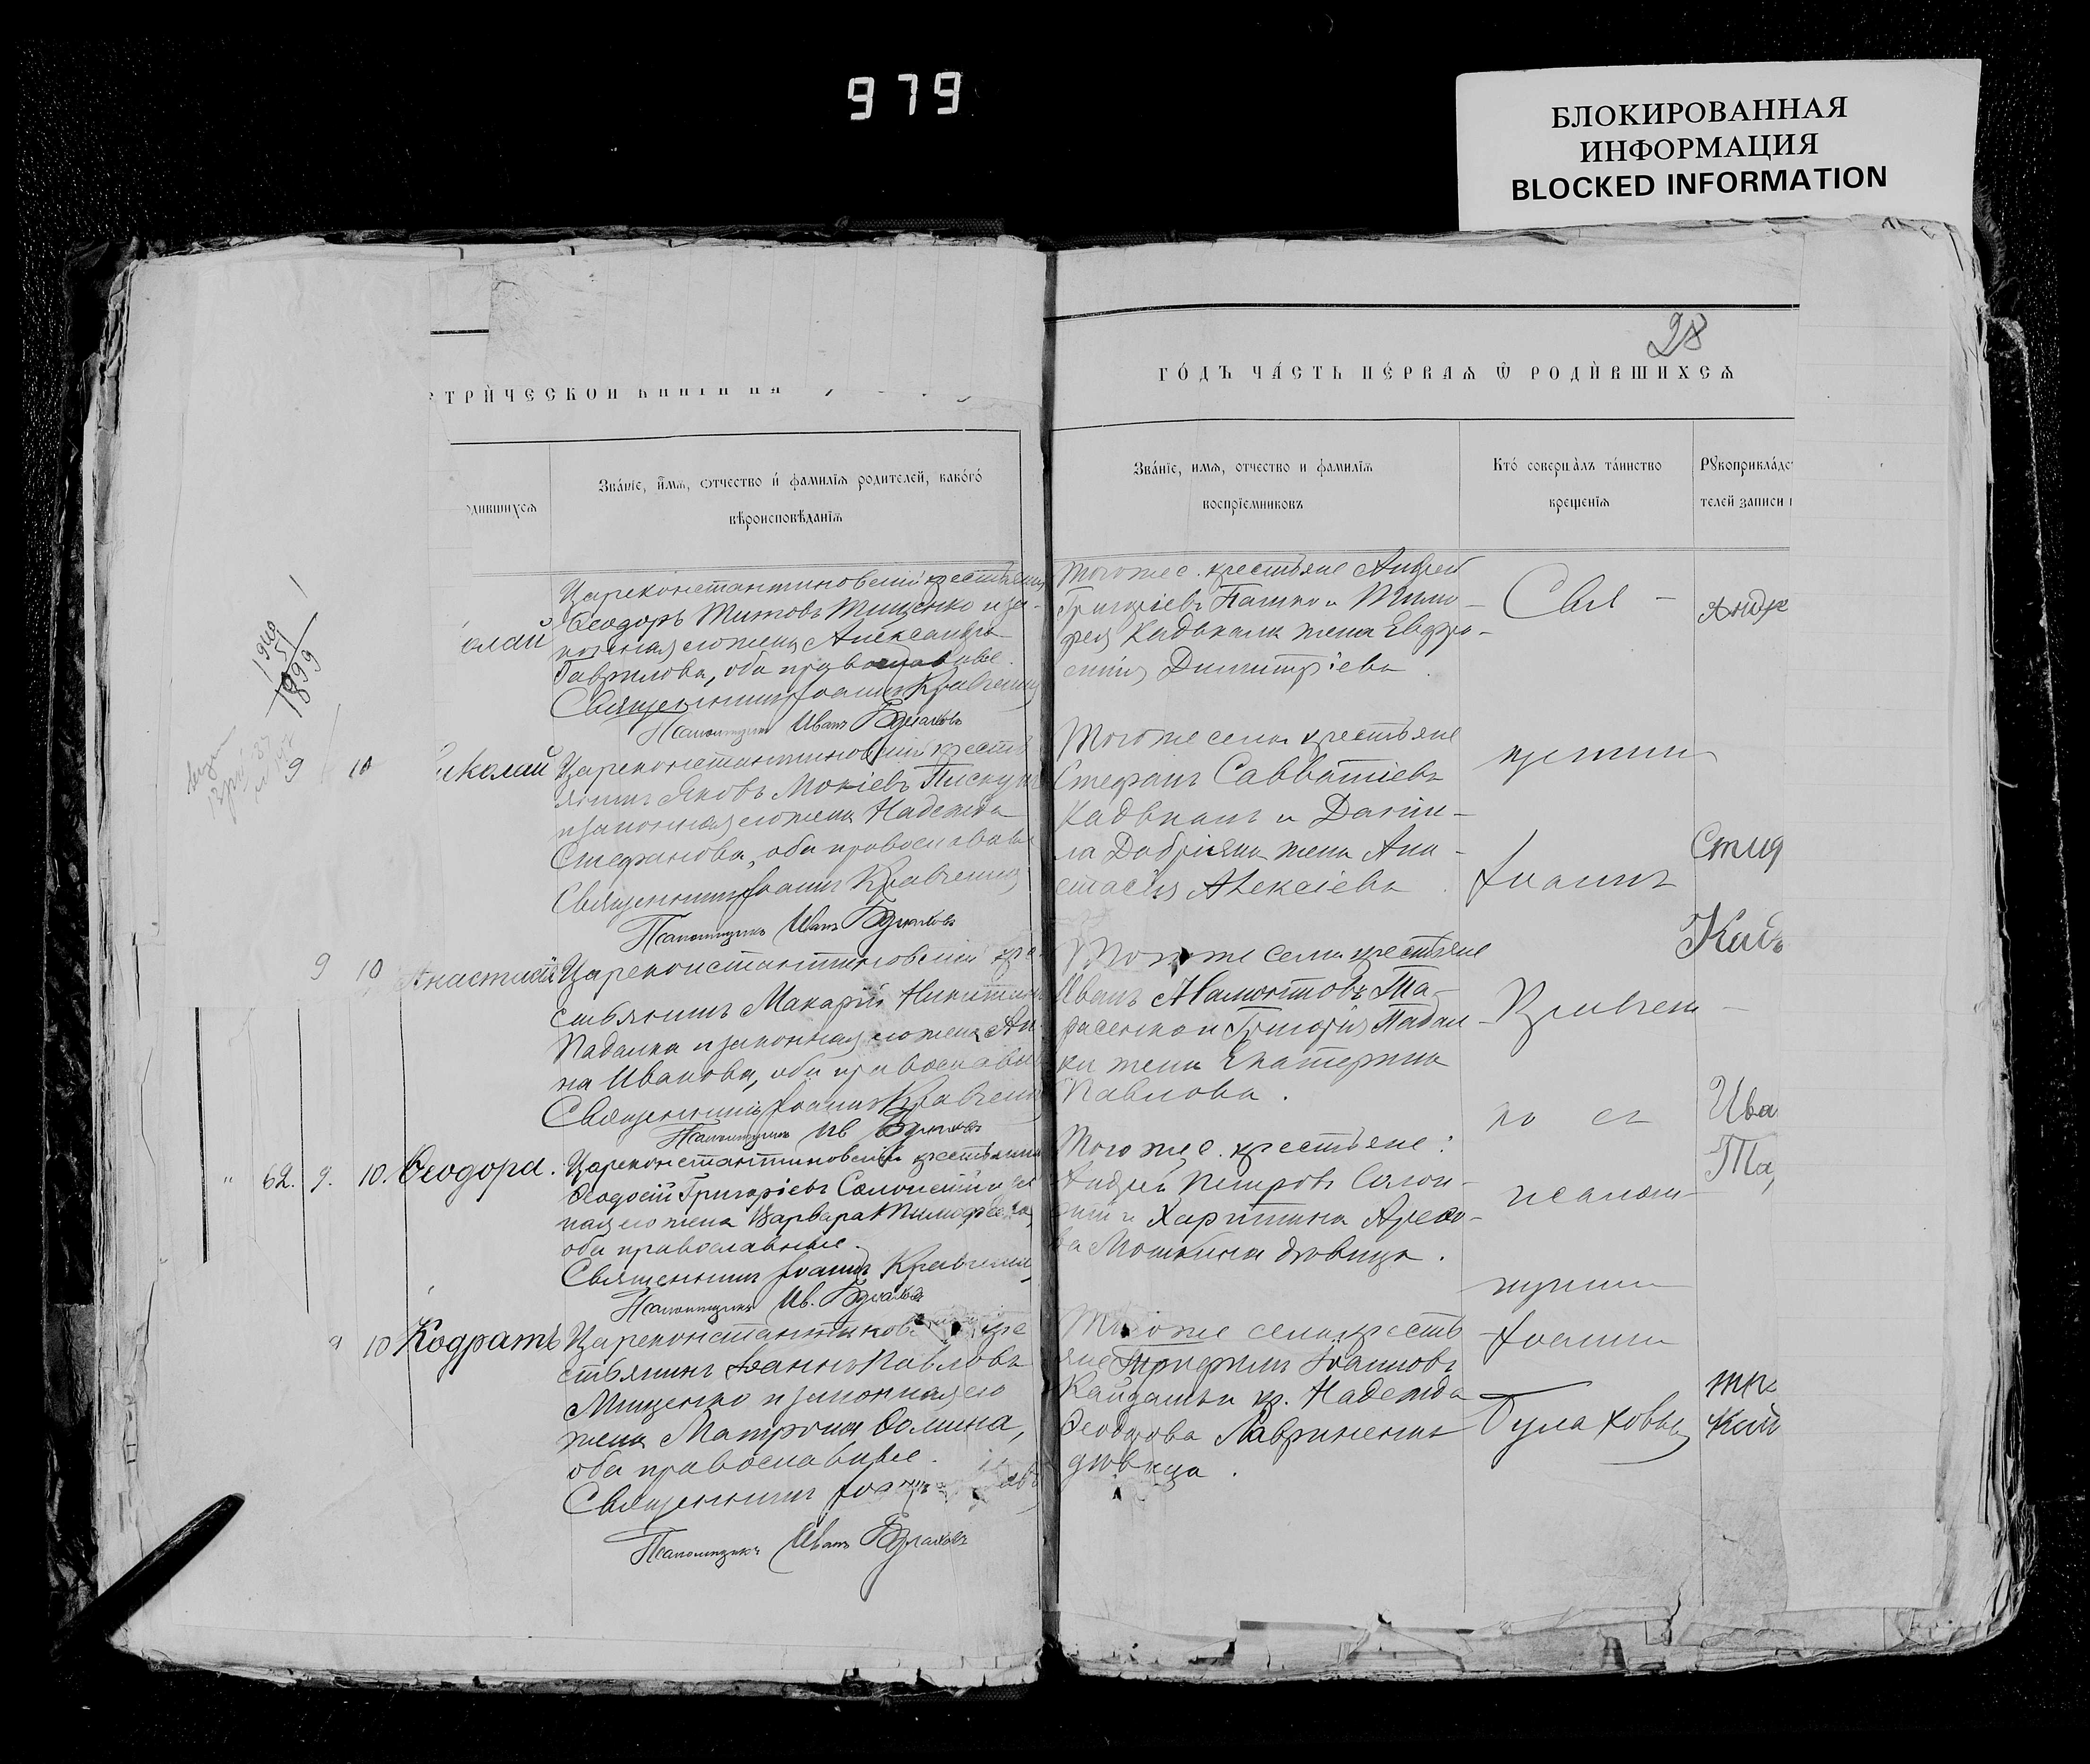 979
БЛОКИРОВАННАЯ
ИНФОРМАЦИЯ
BLOCKED INFORMATION
28
ТРИ́ЧЕСКОЙ КНИГИ НА
ГО́ДЪ ЧА́СТЬ ПЕ́РВАѦ Ѿ РОДИ́ВШИХСѦ
дившихсѧ
Зва́нїе, и҆́мѧ, ѻтчество и҆ фамилїѧ родителей, како́го
вѣроисповѣданїѧ
Зва́нїе, имѧ, отчество и фамилїѧ
воспрїемниковъ
Кто́ соверша́лъ та́инство
крещенїѧ
Рꙋкоприкла́дс
телей записи
1899
олай
Цареконстантиновскій крестьянин
Ѳеодоръ Титовъ Тищенко и за-
конная его жена Александра
Гаврилова, оба православные.
Священникъ Іоаннъ Кравченко
Псаломщикъ Иванъ Булаховъ
Того же с. крестьяне Андрей
Григоріевъ Пашко и Тимо-
фея Кадькала жена Евфро-
синія Димитріева.
Свя-
Андр
9 10 иколай
Цареконстантиновскій кресть
янинъ Яковъ Мокіевъ Пискун
и законная его жена Надежда
Стефанова, оба православные
Священникъ Іоаннъ Кравченко
Псаломщикъ Иванъ Булаховъ
Того же села крестьяне
Стефанъ Савватіевъ
Кадькалъ и Дании-
ла Добріяна жена Ана-
стасія Алексіева.
Іоаннъ
Кадь
9 10 Анастасій
Цареконстантиновскій кре-
стьянинъ Макарій Никитинъ
Падалка и законная его жена Ан-
на Иванова, оба православные
Священникъ Іоаннъ Кравченко
Псаломщикъ Ив Булаховъ
Того же села крестьяне
Иванъ Мамонтовъ Та-
расенко и Григорія Падал-
ки жена Екатерина
Павлова.
Кравчен-
ко съ
Ива
Та
" 62. 9. 10. Ѳеодора.
Цареконстантиновскій крестьянинъ
Ѳеодосій Григоріевъ
ная его жена Варвара Тимофеева,
оба православные.
Священникъ Іоаннъ Кравченко
Псаломщикъ Ив. Булаховъ
Того же с. крестьяне:
Андрей Петровъ
и Харитина
дѣвица.
псалом-
щикомъ
9 10 Кодратъ
Цареконстантиновскій кре
стьянинъ Іоаннъ Павловъ
Мищенко и законная его
жена Матрона Ѳомина,
оба православные.
Священникъ Іоаннъ
Псаломщикъ Иванъ Булаховъ
Того же села кресть
яне Трифонъ Іоанновъ
Кайдашъ и кр. Надежда
Ѳеодорова Лавриненко
дѣвица.
Іоанномъ
Булаховымъ
Кай